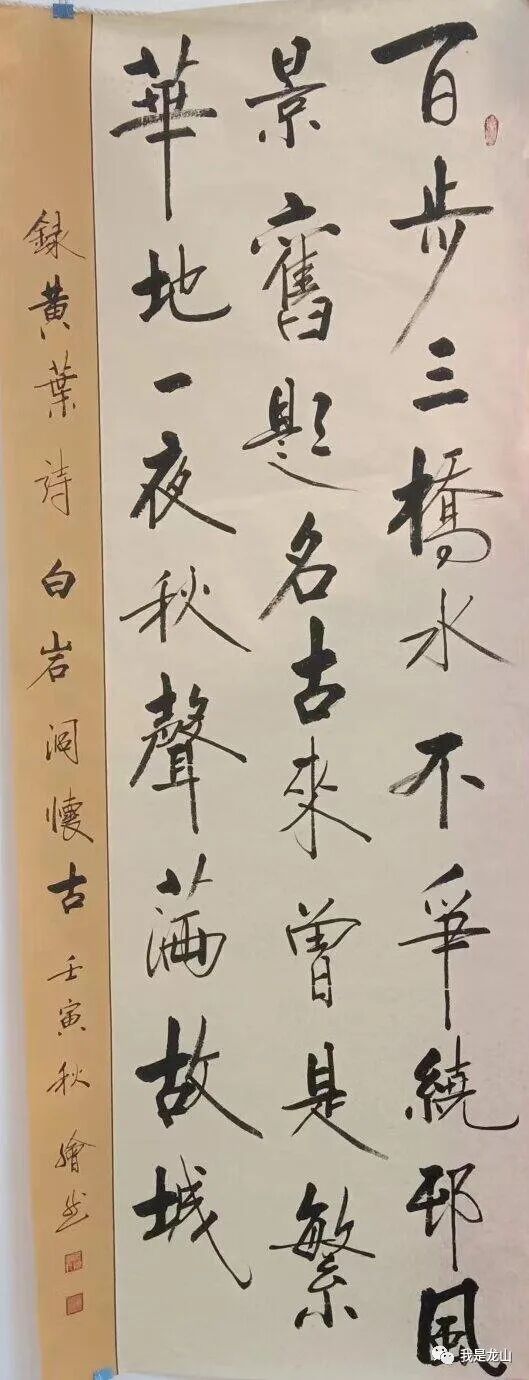 百步三橋水不爭繞邨風
景舊題名古來曾是繁
華地一夜秋聲滿故城
録黄葉詩白岩洞懷古壬寅秋
我是龙山